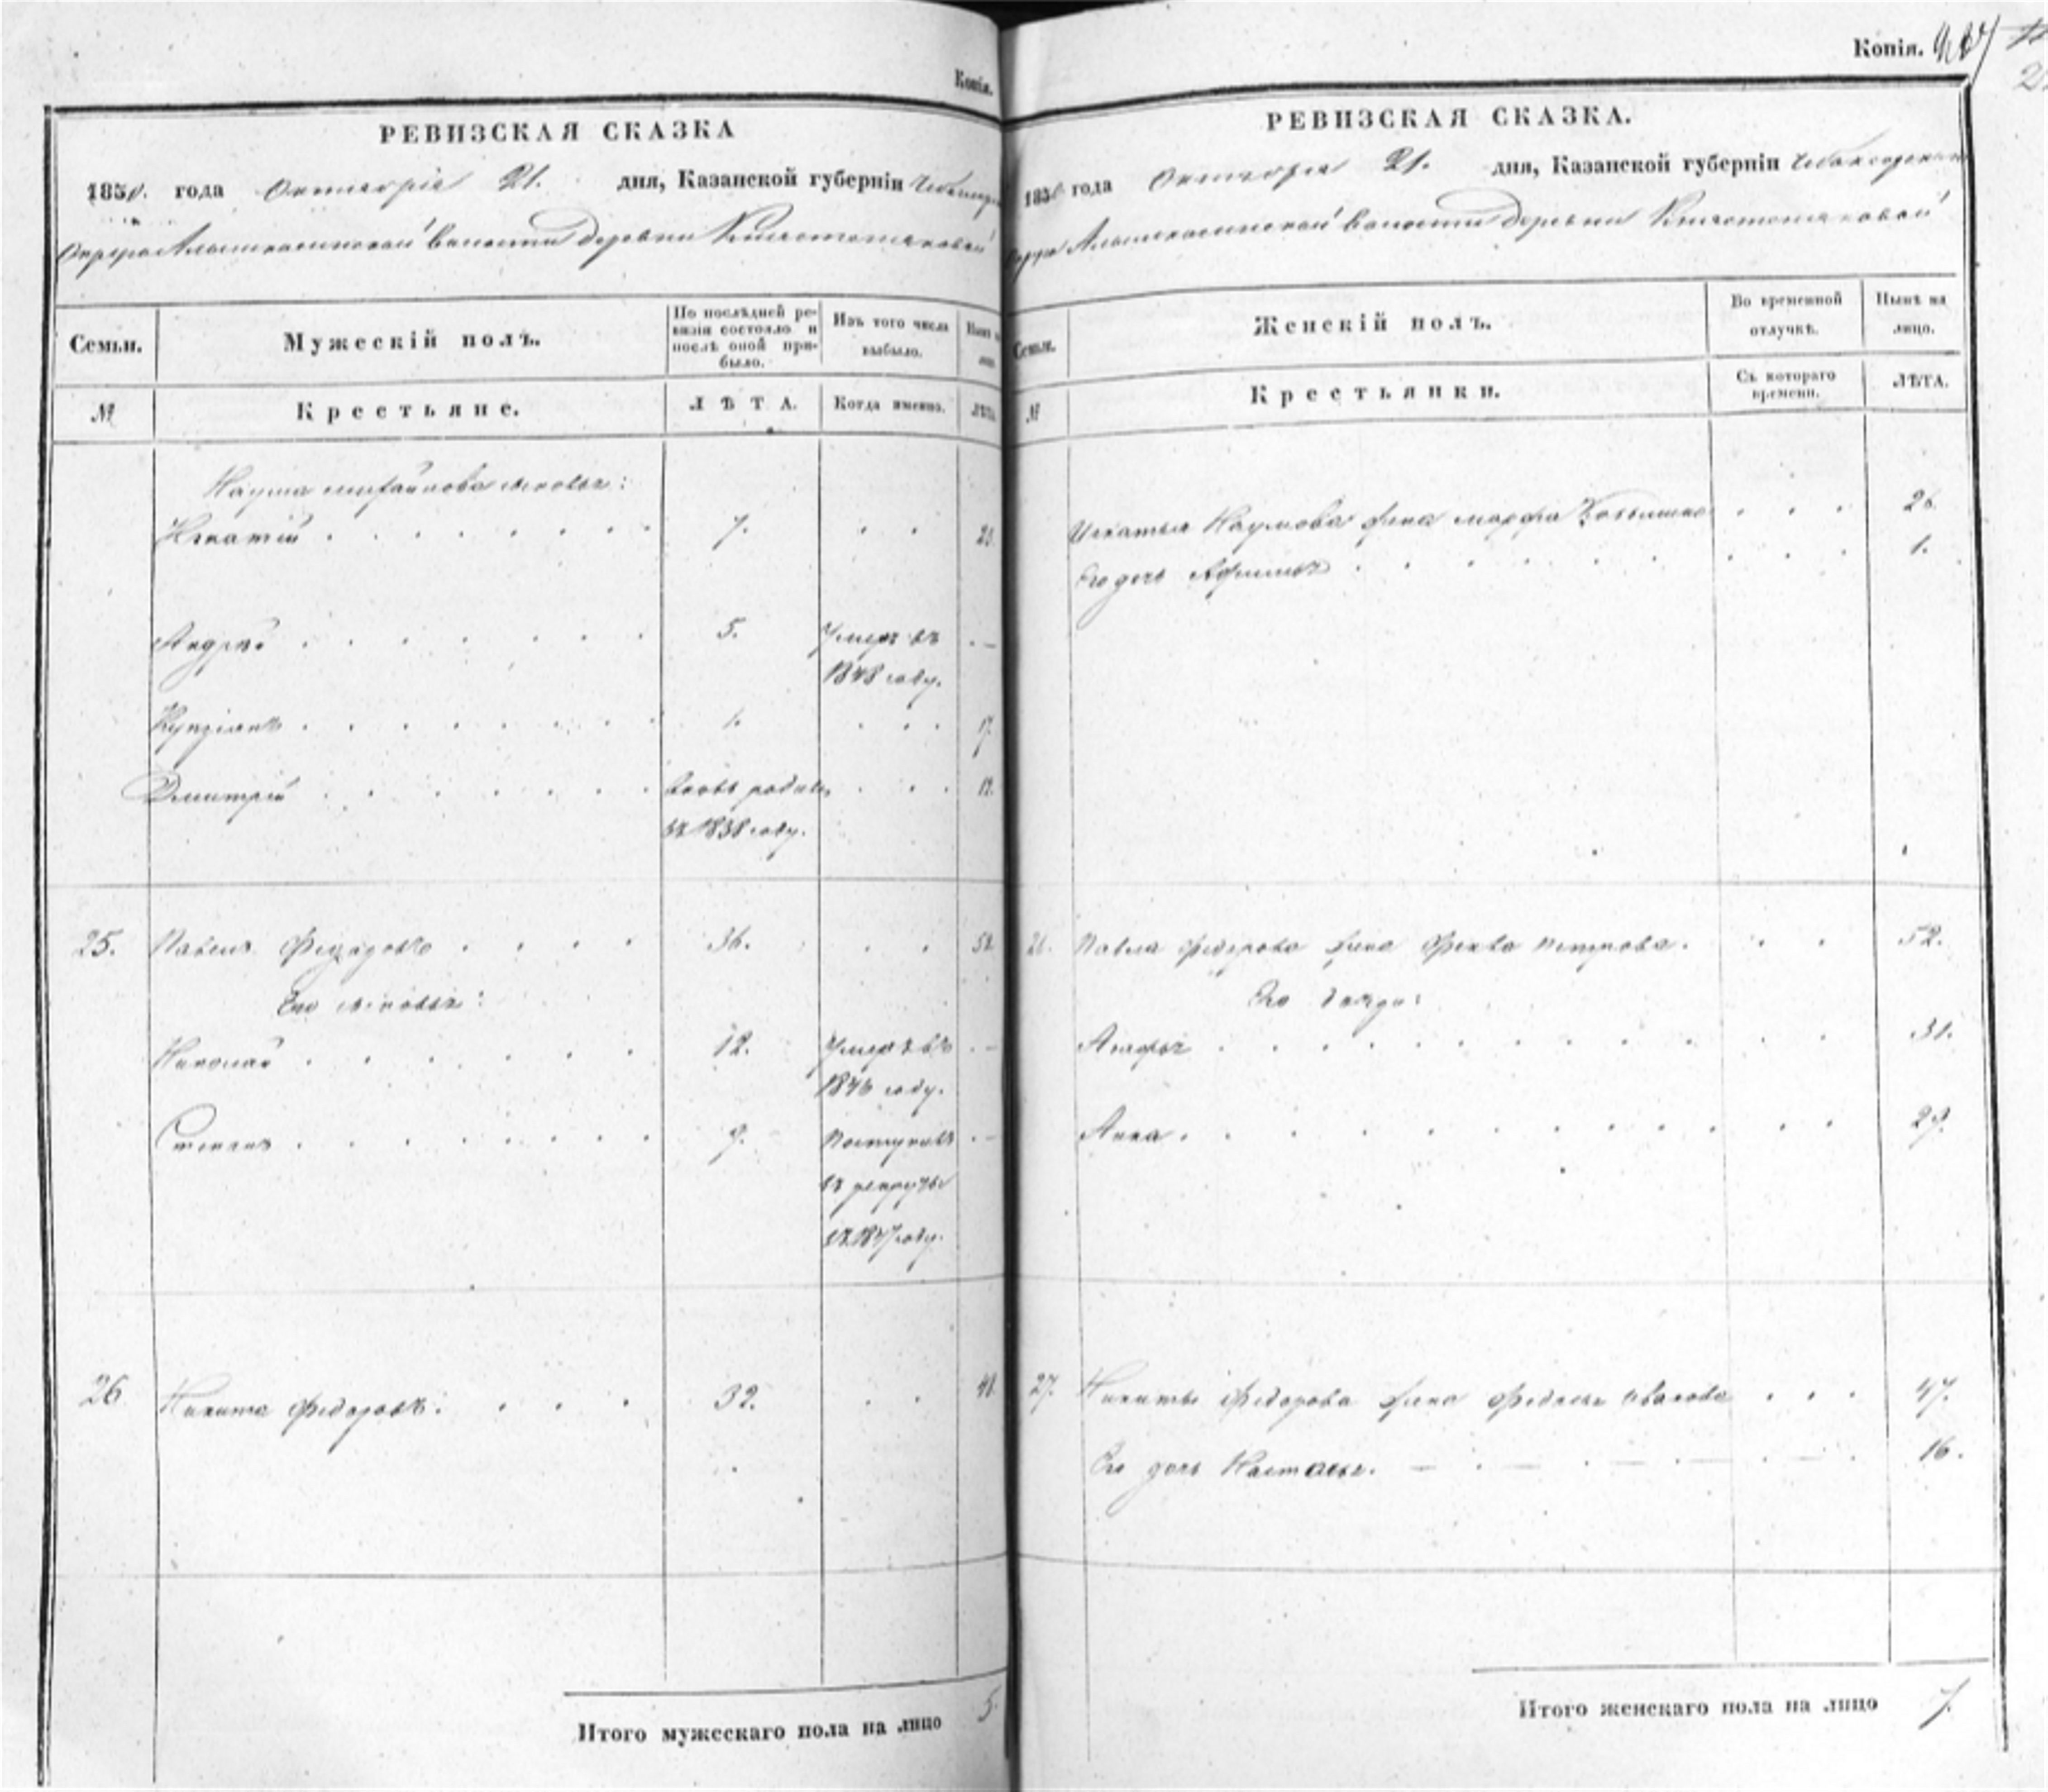 Копія.
РЕВИЗСКАЯ СКАЗКА
1850. года Октября 21. дня, Казанской губерніи
Округа Алымкасинской волости деревни
Семьи.
Мужескій полъ.
По послѣдней ре-
визіи состояло и
послѣ оной при-
было.
Изъ того числа
выбыло.
Нынѣ на
лицо.
№
Крестьяне.
ЛѢТА.
Когда именно.
ЛѢТА.
Наума Михайлова сыновья:
Игнатій 7. 23
Андрей 5. Умеръ въ
1848 году.
Купріянъ 1. 17.
Дмитрій вновь родил.
въ 1838 году. 12.
25. Павелъ Федоровъ 36. 52
Его сыновья:
Николай 12. Умеръ въ
1846 году.
Степанъ 9. Поступилъ
въ рекруты
въ 1847 году.
26 Никита Федоровъ. 32. 48.
Итого мужескаго пола на лицо 5.
Копія.
РЕВИЗСКАЯ СКАЗКА.
1850 года Октября 21. дня, Казанской губерніи Чебоксарскаго
Округа Алымкасинской волости деревни
Семьи.
Женскій полъ.
Во временной
отлучкѣ.
Нынѣ на
лицо.
№
Крестьянки.
Съ котораго
времени.
ЛѢТА.
Игнатья Наумова жена Марфа 26.
Его дочь 1.
26. Павла Федорова жена Фекла Петрова. 52.
Его дочери:
31.
Анна. 29.
27. Никиты Федорова жена Федосья Иванова 47.
Его дочь Настасья. 16.
Итого женскаго пола на лицо 7.